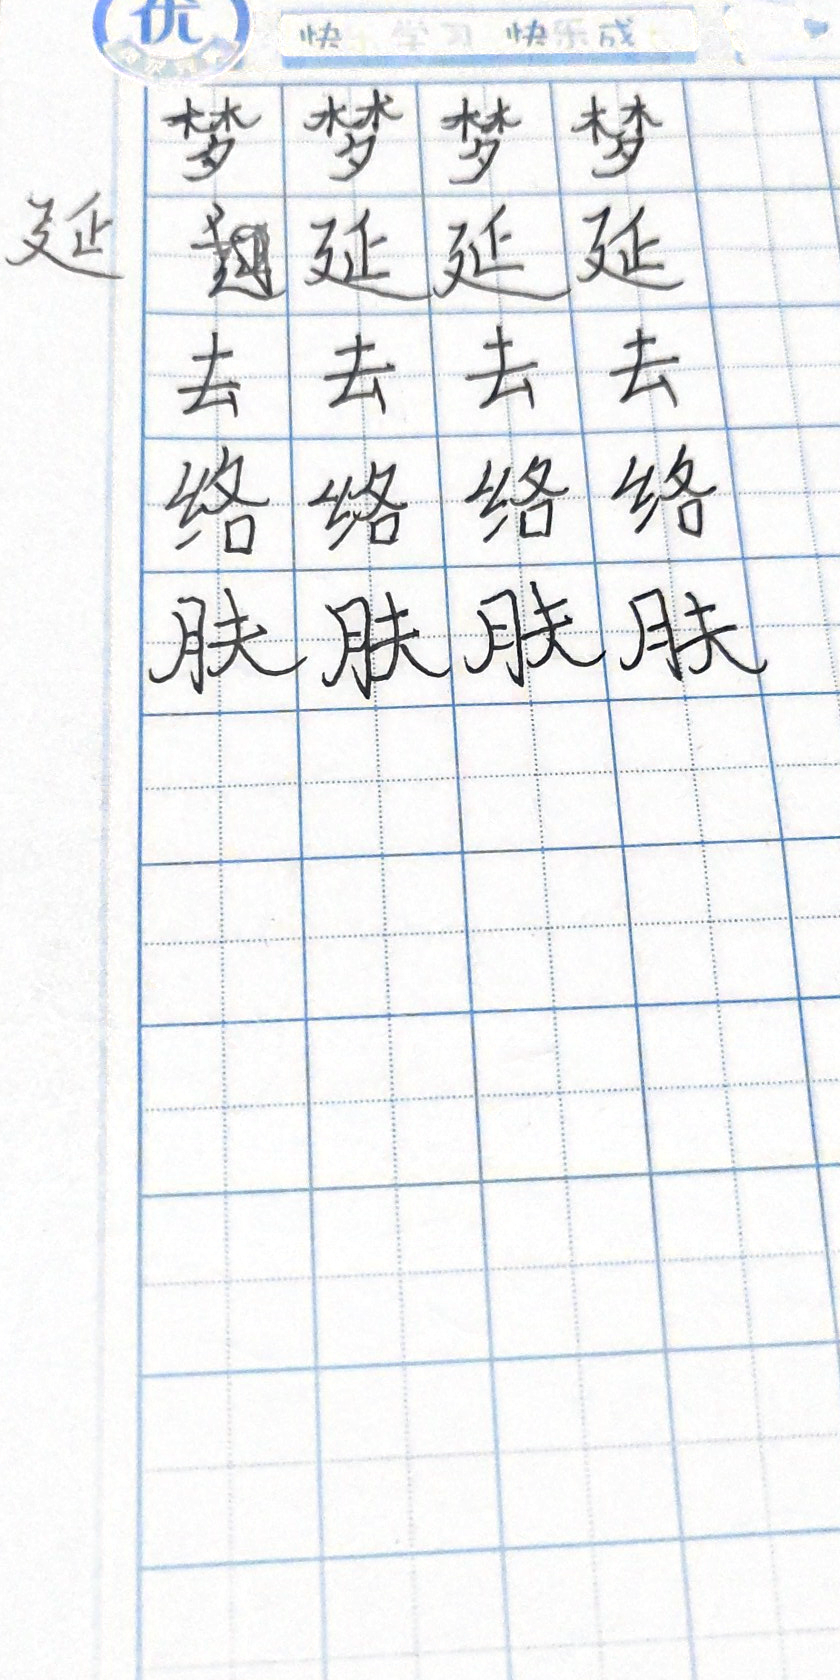 优
快乐学习 快乐成
梦梦梦梦
延 延延延
去去去去
络络络络
肤肤肤肤